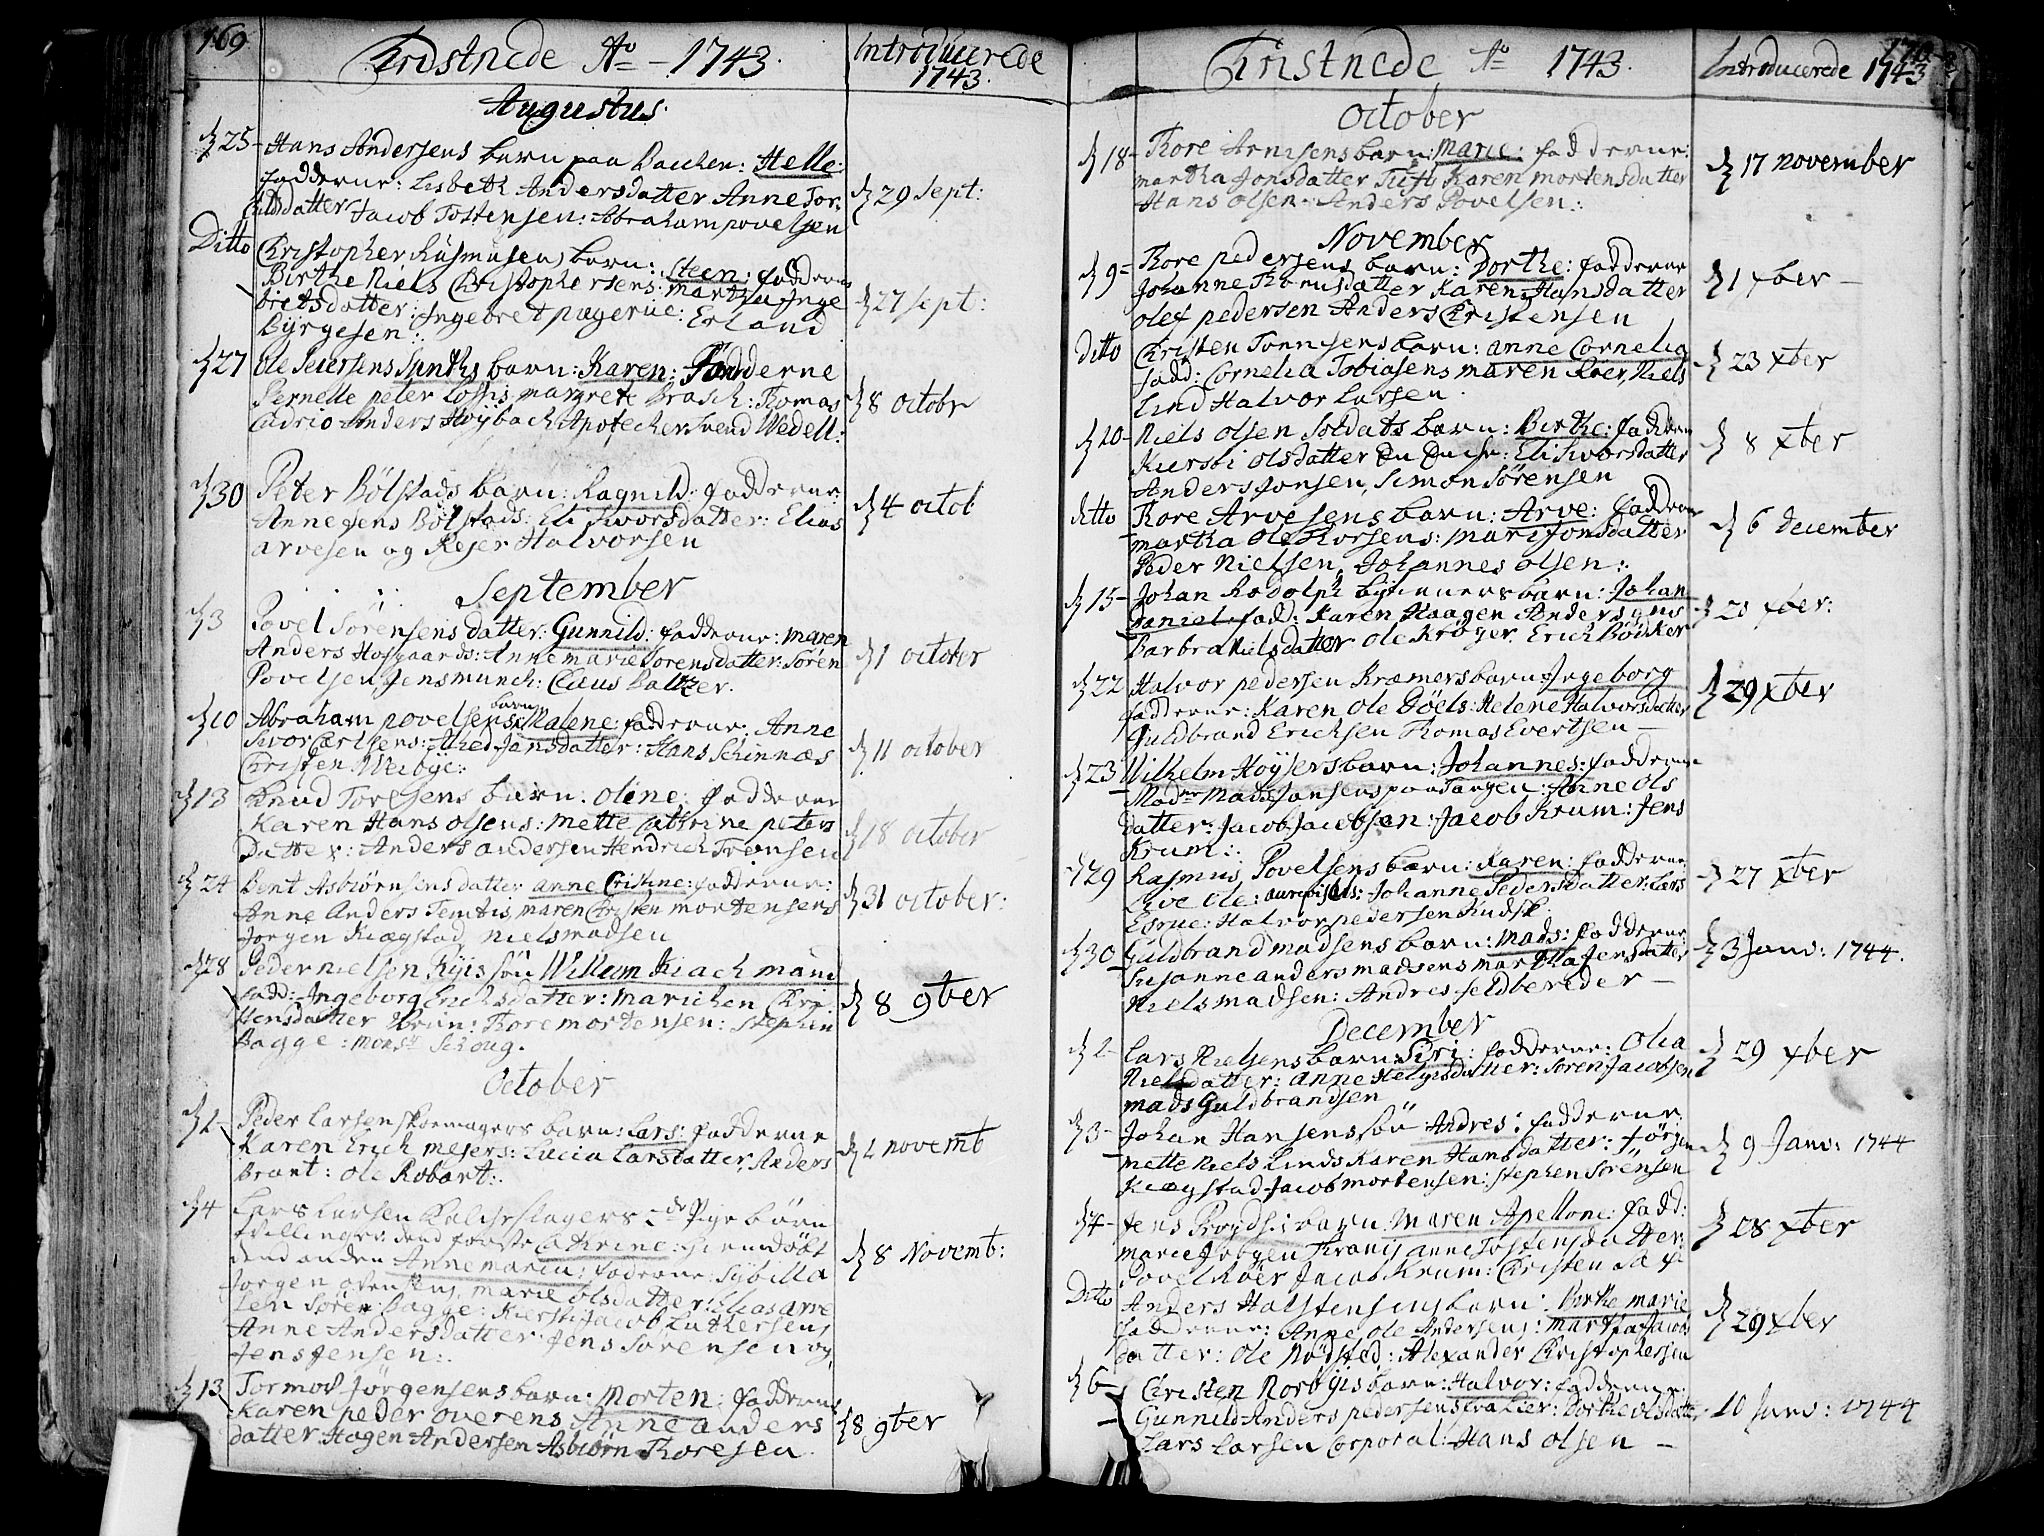 169
Christnede Ao 1743.
Introducerede
1743.
Augustus
25 Hans Andersens barn paa Bachen: Helle:
faddere: Lisbeth Andersdatter Anne Tor
Kildsdatter Jacob Tostensen: Abraham povelsen
29 Sept:
Ditto Christopher Rasmusens barn: Steen: faddere
Birthe Niels Christophersens: Martha Inge
bretsdatter: Ingebret pagerue: Erland
Byrgesen:
27 Sept:
27 Ole Seiersens barn: Karen: Fadderne
Pernelle peter Loftis margrete Brasch: Thomas
Cudrio Anders Høybach Apotecher Svend Wedell:
8 octobr
30 Peter Bölstads barn: Ragnild: faddere:
Anne Jens Bölstads: Eli Sivorsdatter: Elias
arvesen og Rejer Halvorsen
4 octob
September
3 Povel Sörensens datter: Gunnild: faddere: maren
Anders Hofgaards: Anne marie Sorensdatter: Sören
Povelsen, Jens munch: Claus Baltzer.
1 october
10 Abraham povelsens barn Malene: faddere: Anne
Sivor Carlsens: Ahed Jansdatter: Hans Schinnæs
Christen Weibye:
11 october
13 Knud Toressens barn: oline: faddere
Karen Hans olsens: Mette Cathrine peters
Datter: Anders andersen Hendrich Tronsen
18 october
24 Bent Asbiörnsens datter anne Cristine: faddere:
Anne Anders Temtis, maren Christen mortensens
Jorgen Kiægstad, Niels madsen
31 october:
28 Peder nielsen Ryis sön Willum Kiachmand
fadd: Ingeborg Erichsdatter: marichen Chri
stensdatter Brun: Thore mortensen: Stephen
Bagge: Monsr Schoug.
8 9ber
October
2 Peder Larsen skomagers barn: Lars: faddere
Karen Erich mejers: Lucia Larsdatter, Anders
Brant: Ole Robart:
2 novemb
4 Lars Larsen 2de Pige börn
tvillinger dend förste Cathrine: hiemdöbt
dend anden Anne maria: fadderne: Sybilla
Jorgen ovensens, marie olsdatter: Elias arve
sen Sören Bagge: Kiersti Jacob Luthersens
Anne Andersdatter Jens Sörensen og
Jens Jensen:
8 Novemb:
13 Tormod Jörgensens barn: Morten: faddere
Karen peder overens Anne anders
datter Hagen Andersen Asbiörn Thoresen
8 9ber
Christnede Ao 1743.
Introducerede 1743
October
18 Thore Arnesens barn: Marie: fadderne:
martha Jonsdatter Tufts Karen mortensdatter
Hans olsen: Anders Povelsen:
17 november
November
9 Thore pedersens barn: Dorthe: faddere
Johanne Thomisdatter Karen Hansdatter
olef pedersen Anders Christensen
1 xber
ditto Christen Tonnesens barn: anne Cornelia
fadd: Cornelia Tobiasens maren Röer, Niels
Lind Halvor Larsen
23 xber
10 Niels olsen Soldats barn: Birthe: faddere
Kiersti olsdatter Eli Siworsdatter
Anders Jonsen, Simon Sörensen
8 xber
ditto Thore Arvesens barn: Arve: faddere
martha ole Thorsens: Mari Jonsdatter
Peder Nielsen, Johannes olsen:
6 december
15 Johan Rodolph barn: Johan
Daniel fadd: Karen Haagen Andersens
Barbra Nielsdatter Ole Kröger Erich Bödker
20 xber:
22 Halvor pedersen Kræmers barn Ingeborg
faddere: Karen Ole Döels: Helene Halvorsdatter
Guldbrand Erichsen Thomas Evertsen
29 xber
23 Wilhelm Höysers barn: Johannes: faddere
Madme Mads Jansens paa Tangen: Anne Ols
datter: Jacob Jacobsen: Jacob Krum: Jens
Krum:
29 Rasmus Povelsens barn: Karen: faddere
Live Ole: Johanne Pedersdatter: Lars
Esrue: Halvor pedersen Kudsk
27 xber
30 Guldbrand madsens barn: Mads: fadderne
Susanne anders madsens martha Jensdatter
Niels madsen: Andres feldbereder
3 Janv: 1744.
December
2 Lars Nielsens barn: Siri: fadderne: Olia
Nielsdatter: anne Helgesdatter: Soren Jacobsen
mads Guldbrandsen
29 xber
3 Johan Hansens sön Andres: fadderne
mette Niels Linds Karen Hansdatter: Jörgen
Kiægstad Jacob mortensen: Stephen Sörensen
9 Janv: 1744
4 Jens barn: Maren Apellone: fadd:
marie Jörgen anne Tostensdatter
Povel Röer Jacob Krum: Christen Sax
28 xber
Ditto Anders Halstensens barn: Birthe marie
faddere: Anne ole Andersens: martha Jacobs
datter: Ole Nödsted: Alexander Christophersen
29 xber
6 Christen Norbyis barn: Halvor: fadderne:
Gunnild Anders pedersens Dorthe olsdatter
Lars Larsen Corporal: Hans olsen
10 Janv: 1744